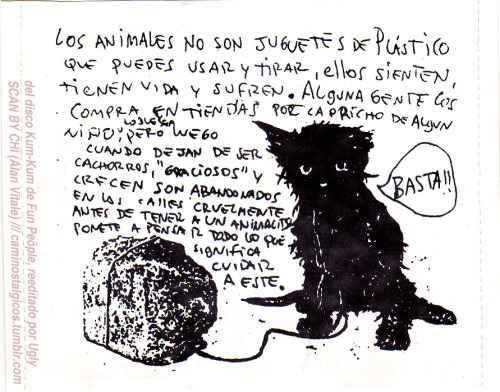 LOS ANIMALES NO SON JUGUETES DE PLÁSTICO
QUE PUEDES USAR Y TIRAR, ELLOS SIENTEN,
TIENEN VIDA Y SUFREN. ALGUNA GENTE LOS
COMPRA EN TIENDAS POR CAPRICHO DE ALGUN
NIÑO, PERO LUEGO
CUANDO DEJAN DE SER
CACHORROS, "GRACIOSOS" Y
CRECEN SON ABANDONADOS
EN LAS CALLES CRUELMENTE
ANTES DE TENER A UN ANIMALITO
PONETE A PENSAR TODO LO QUE
SIGNIFICA
CUIDAR
A ESTE.
BASTA!!
del disco Kum-Kum de Fun People, reeditado por Ugly
SCAN BY CHI (Alan Vitale) /// caminostalgicos.tumblr.com